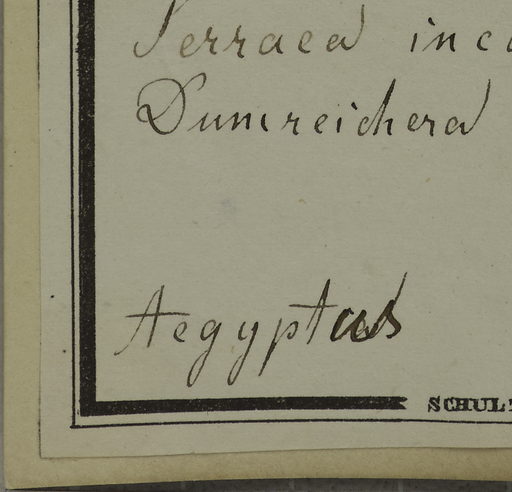 Serraea inc
Dumreichera
Aegyptus
SCHUL